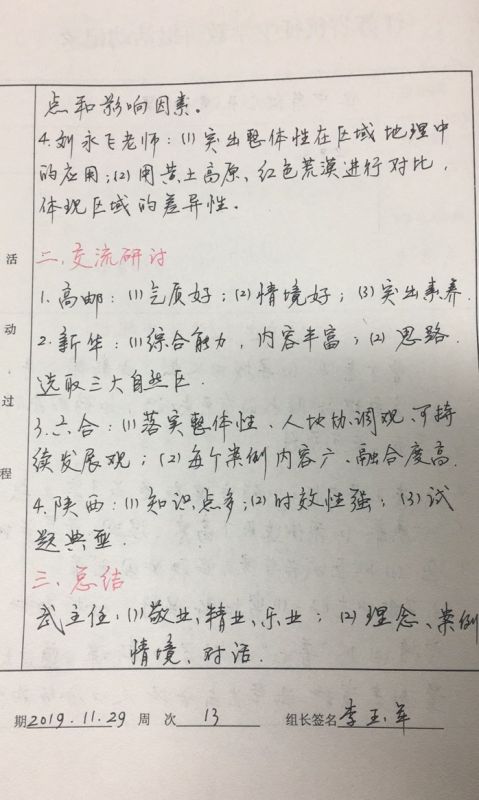 点和影响因素。
4.刘永飞老师:(1)突出整体性在区域地理中
的应用;(2)用黄土高原、红色荒漠进行对比,
体现区域的差异性。
二、交流研讨
1.高邮:(1)气质好;(2)情境好;(3)突出素养.
2.新华:(1)综合能力,内容丰富;(2)思路.
选取三大自然区.
3.六合:(1)落实整体性、人地协调观、可持
续发展观;(2)每个案例内容广、融合度高.
4.陕西:(1)知识点多;(2)时效性强;(3)试
题典型.
三、总结
武主任:(1)敬业、精业、乐业;(2)理念、案例
情境、对话.
活
动
过
程
期2019.11.29 周 次 13 组长签名 李玉军